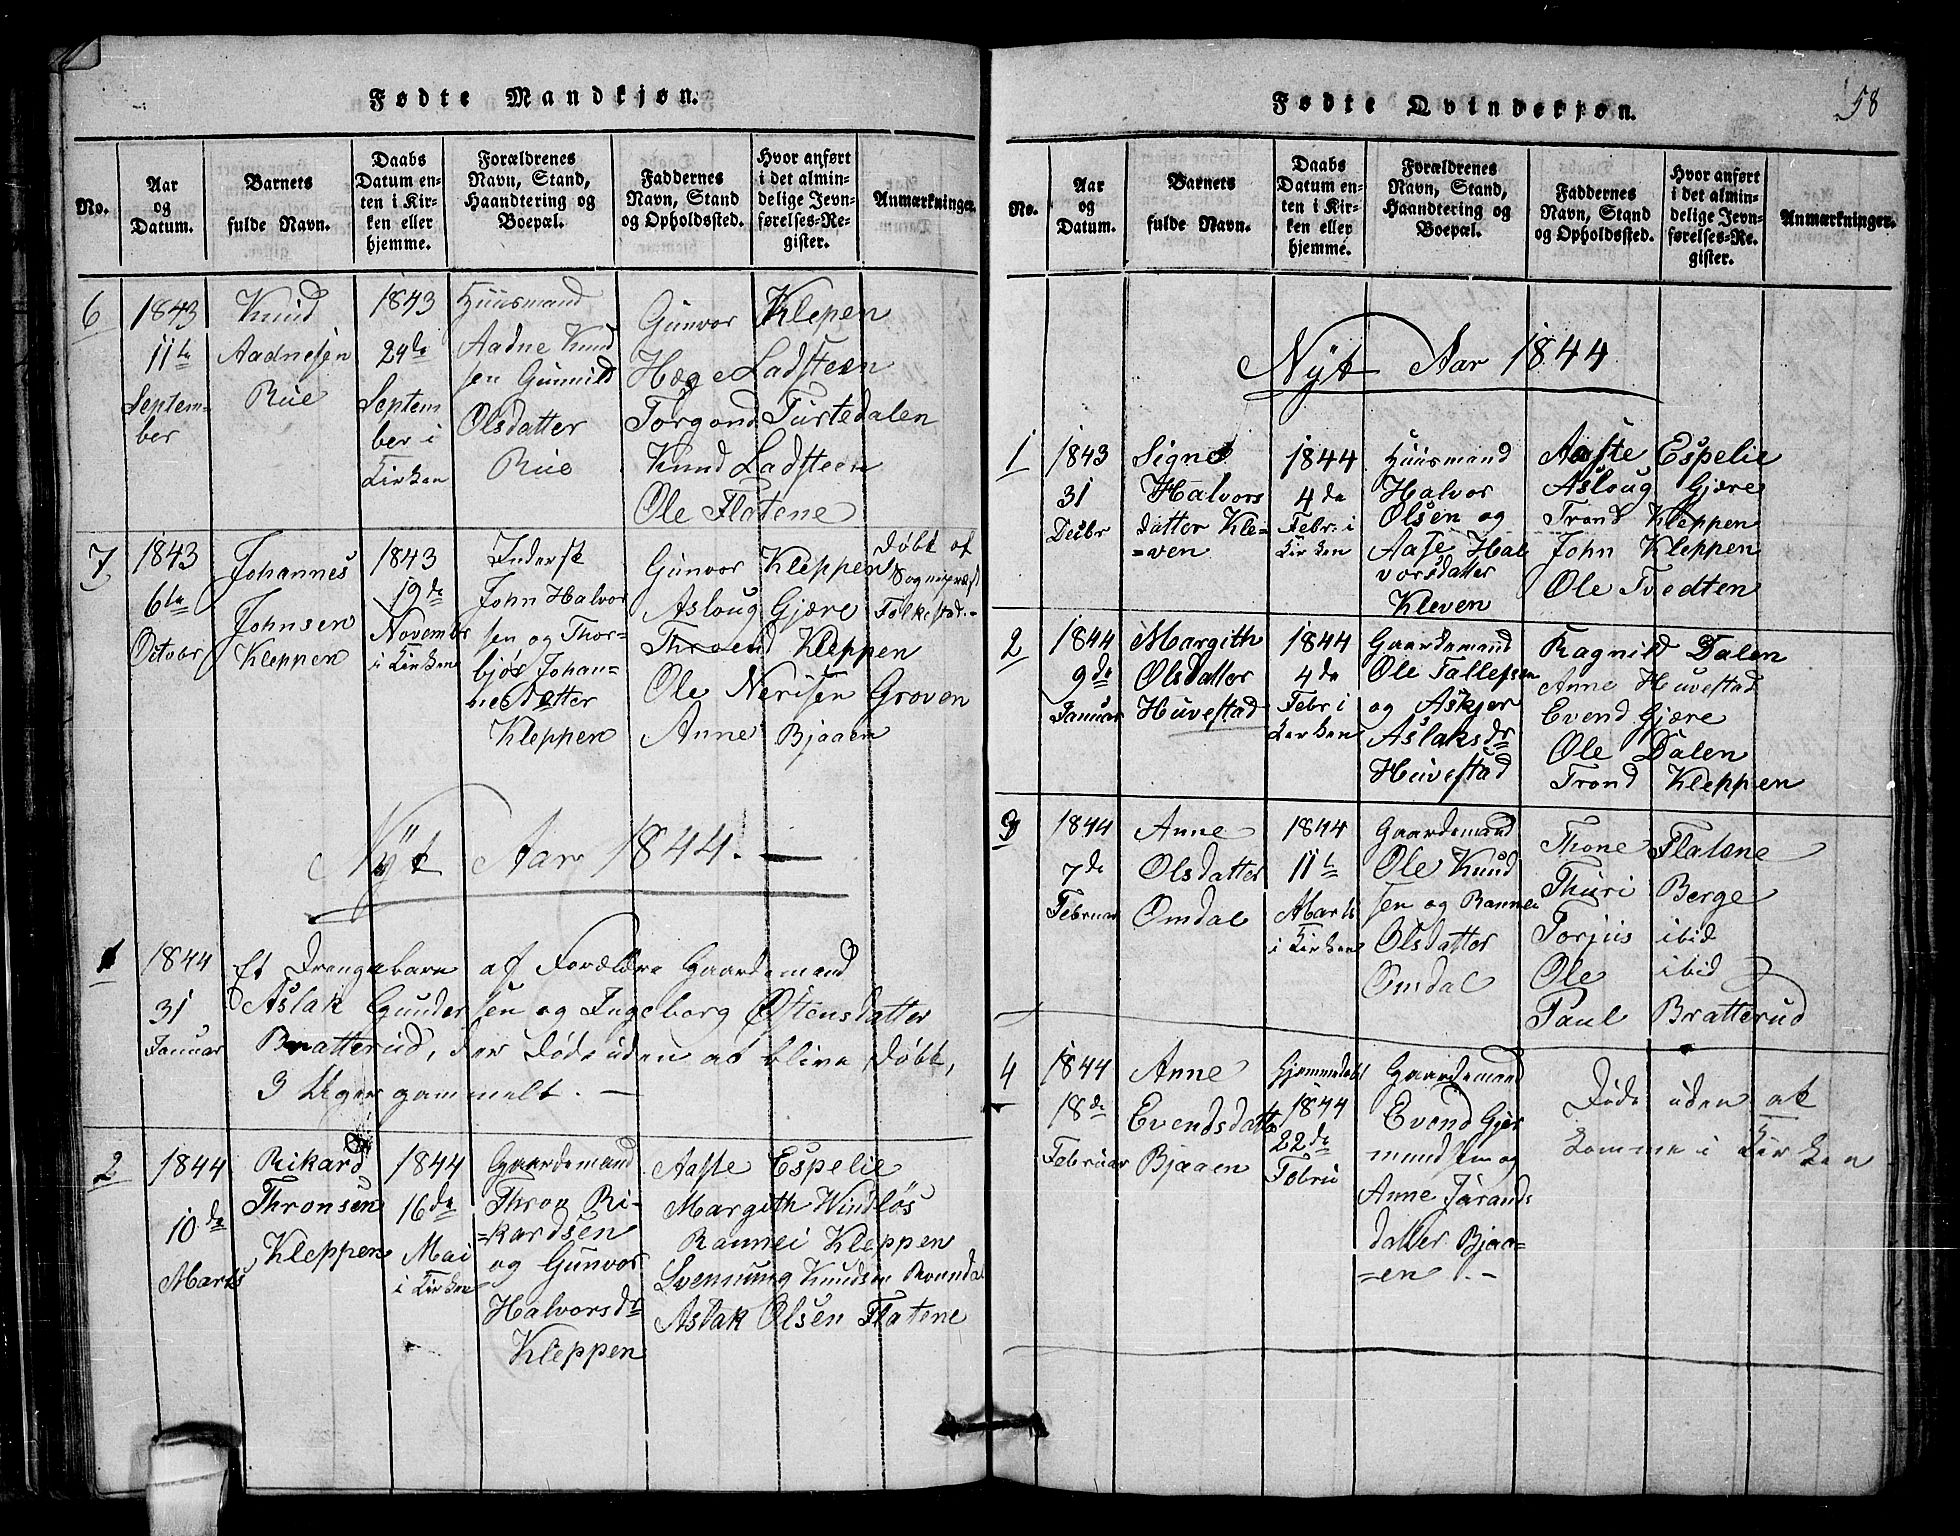 Fødte Mandkjøn.
No.
Aar
og
Datum.
Barnets
fulde Navn.
Daabs
Datum en-
ten i Kir-
ken eller
hjemme.
Forældrenes
Navn, Stand,
Haandtering og
Boepæl.
Faddernes
Navn, Stand
og Opholdssted.
Hvor anført
i det almin-
delige Jevn-
førelses-Re-
gister.
Anmærkninger.
6
1843
11te
Septem-
ber
Knud
Aadnesen
Rue
1843
24de
Septem
ber i
Kirken
Huusmand
Aadne Knud
sen Gunnild
Olsdatter
Rue
Gunvor Klepen
Hæge Ladsteen
Torgond Turtedalen
Knud Ladsteen
Ole Flatene
7
1843
6te
Octobr
Johannes
Johnsen
Kleppen
1843
19de
Novembr
i Kirken
Inderst
John Halvor
sen og Thor-
bjør Johan-
nesdatter
Kleppen
Gunvor Kleppen
Asloug Gjære
Throend Kleppen
Ole Nerisen Groven
Anne Bjaaen
Døbt af
Sognepræst
Folkestad.
Nyt Aar 1844.
1
1844
31
Januar
Et Drengebarn af Forældre Gaardemand
Aslak Gundersen og Ingeborg Østensdatter
Bratterud, der døde uden at blive døbt,
3 Uger gammelt.
2
1844
10de
Marts
Rikard
Thronsen
Kleppen
1844
16de
Mai
i Kirken
Gaardemand
Thron Ri-
kardsen
og Gunvor
Halvorsdr
Kleppen
Aaste Espelie
Margith Windløs
Rannei Kleppen
Svennung Knudsen
Aslak Olsen Flatene
Fødte Qvindekjøn.
58
No.
Aar
og
Datum.
Barnets
fulde Navn.
Daabs
Datum en-
ten i Kir-
ken eller
hjemme.
Forældrenes
Navn, Stand,
Haandtering og
Boepæl.
Faddernes
Navn, Stand
og Opholdssted.
Hvor anført
i det almin-
delige Jevn-
førelses-Re-
gister.
Anmærkninger.
Nyt Aar 1844
1
1843
31
Decbr
Signe
Halvors
datter Kle-
=ven
1844
4de
Febr. i
Kirken
Huusmand
Halvor
Olsen og
Aase Hal
vorsdatter
Kleven
Aaste Espelie
Asloug Gjære
Trond Kleppen
John Kleppen
Ole Tvedten
2
1844
9de
Januar
Margith
Olsdatter
Huvestad
1844
4de
Febr i
Kirken
Gaardemand
Ole Tallefsen
og Askjer
Aslaksdr
Huvestad
Ragnild Dalen
Anne Huvestad
Evend Gjære
Ole Dalen
Trond Kleppen
3
1844
7de
Februar
Anne
Olsdatter
Omdal
1844
11te
Marts
i Kirken
Gaardemand
Ole Knud
sen og Rannei
Olsdatter
Omdal
Thone Flatene
Thuri Berge
Torjus ibid
Ole ibid
Paul Bratterud
4
1844
18de
Februar
Anne
Evendsdatter
Bjaaen
Hjemmedøbt
1844
22de
Febru
Gaardemand
Evend Gjer
mundsen og
Anne Jarands
datter Bjaa-
=en
Døde uden at
komme i Kirken